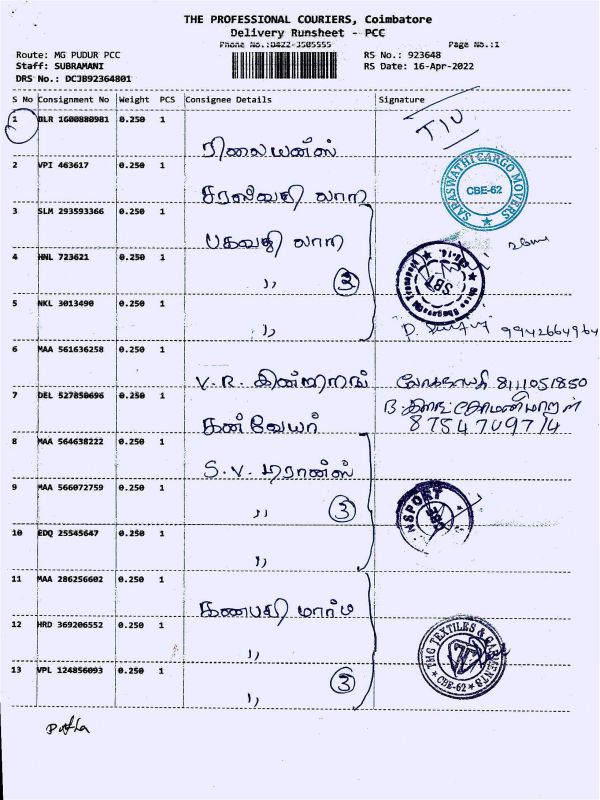 THE PROFESSIONAL COURIERS, Coimbatore
Delivery Runsheet - PCC
Phone No.:0422-3505555 Page No.:1
Route: MG PUDUR PCC RS No.: 923648
Staff: SUBRAMANI RS Date: 16-Apr-2022
DRS No.: DCJB92364801
S No Consignment No Weight PCS Consignee Details Signature
1 BLR 1600880981 0.250 1 ரிலையன்ஸ்
2 VPI 463617 0.250 1 சரஸ்வதி லாரி
SARASWATHI CARGO MOVERS CBE-62
3 SLM 293593366 0.250 1 பகவதி லாரி
4 HNL 723621 0.250 1 ,, 3
SBT
5 NKL 3013490 0.250 1 ,, 9942664964
6 MAA 561636258 0.250 1 V.R. 8111051850
7 DEL 527850696 0.250 1 கன்வேயர்
8 MAA 564638222 0.250 1 S.V. டிரான்ஸ்
9 MAA 566072759 0.250 1 ,, 3
10 EDQ 25545647 0.250 1 ,,
11 MAA 286256602 0.250 1 கணபதி மார்ம
12 HRD 369206552 0.250 1 ,,
TMG TEXTILES & GARMENTS CBE-62
13 VPL 124856093 0.250 1 ,, 3